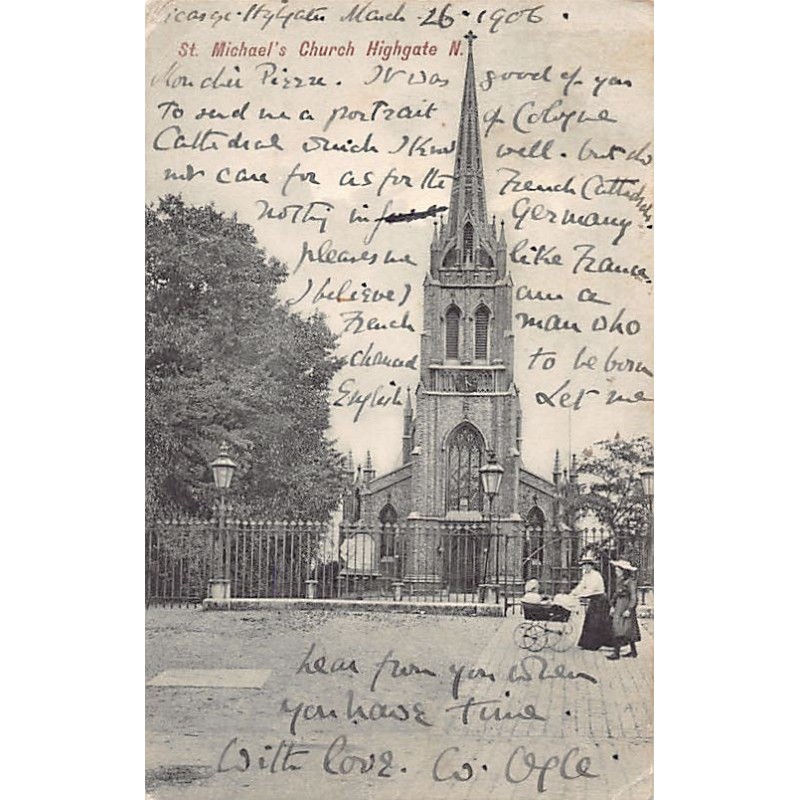 Vicarage Highgate March 26. 1906.
St. Michael's Church Highgate N.
Mon cher Pierre. It was good of you
to send me a portrait of Cologne
Cathedral which I know well. but do
not care for as for the French Cathedrals.
Nothing in Germany
pleases me like France.
I believe I am a
French man who
chanced to be born
English Let me
hear from you when
you have time.
With love. W. Ogle.